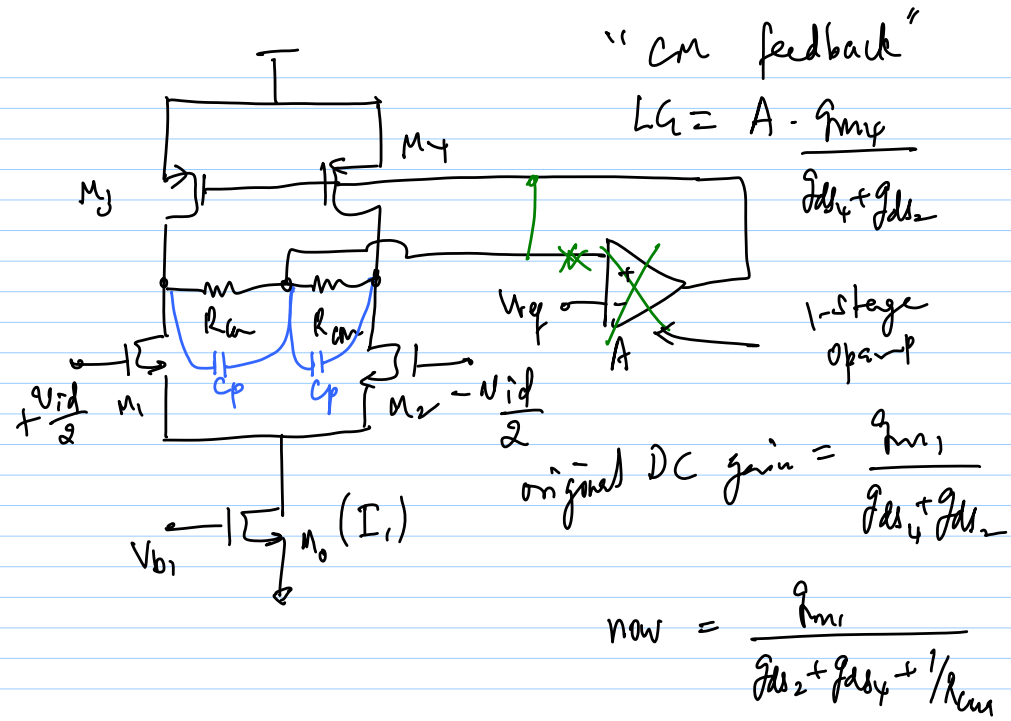 "CM feedback"
LG = A · gm4 / gds4 + gds2
M4
M3
Rcm
Rcm
+
-
A
1-stage
opamp
Cp
Cp
+Vid/2
M1
M2
-Vid/2
original DC gain = gm1 / gds4 + gds2
Vb1
M0 (I1)
now = gm1 / gds2 + gds4 + 1/Rcm